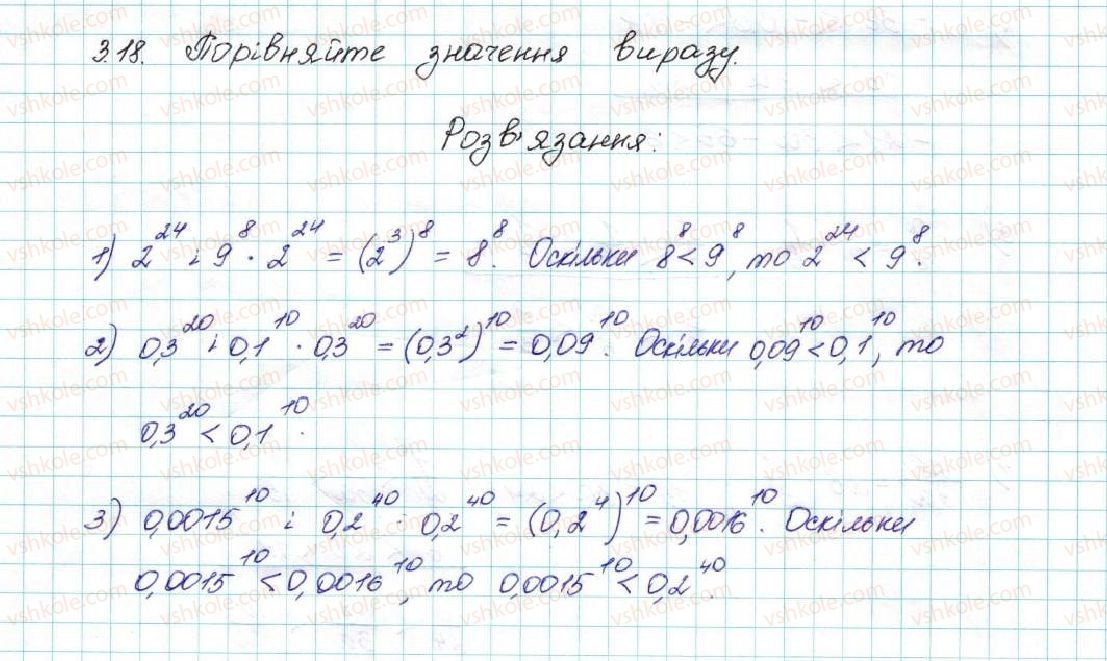 3.18. Порівняйте значення виразу.
Розв'язання:
1) 2²⁴ і 9⁸. 2²⁴ = (2³)⁸ = 8⁸. Оскільки 8⁸ < 9⁸, то 2²⁴ < 9⁸.
2) 0,3²⁰ і 0,1¹⁰. 0,3²⁰ = (0,3²)¹⁰ = 0,09¹⁰. Оскільки 0,09¹⁰ < 0,1¹⁰, то
0,3²⁰ < 0,1¹⁰.
3) 0,0015¹⁰ і 0,2⁴⁰. 0,2⁴⁰ = (0,2⁴)¹⁰ = 0,0016¹⁰. Оскільки
0,0015¹⁰ < 0,0016¹⁰, то 0,0015¹⁰ < 0,2⁴⁰.